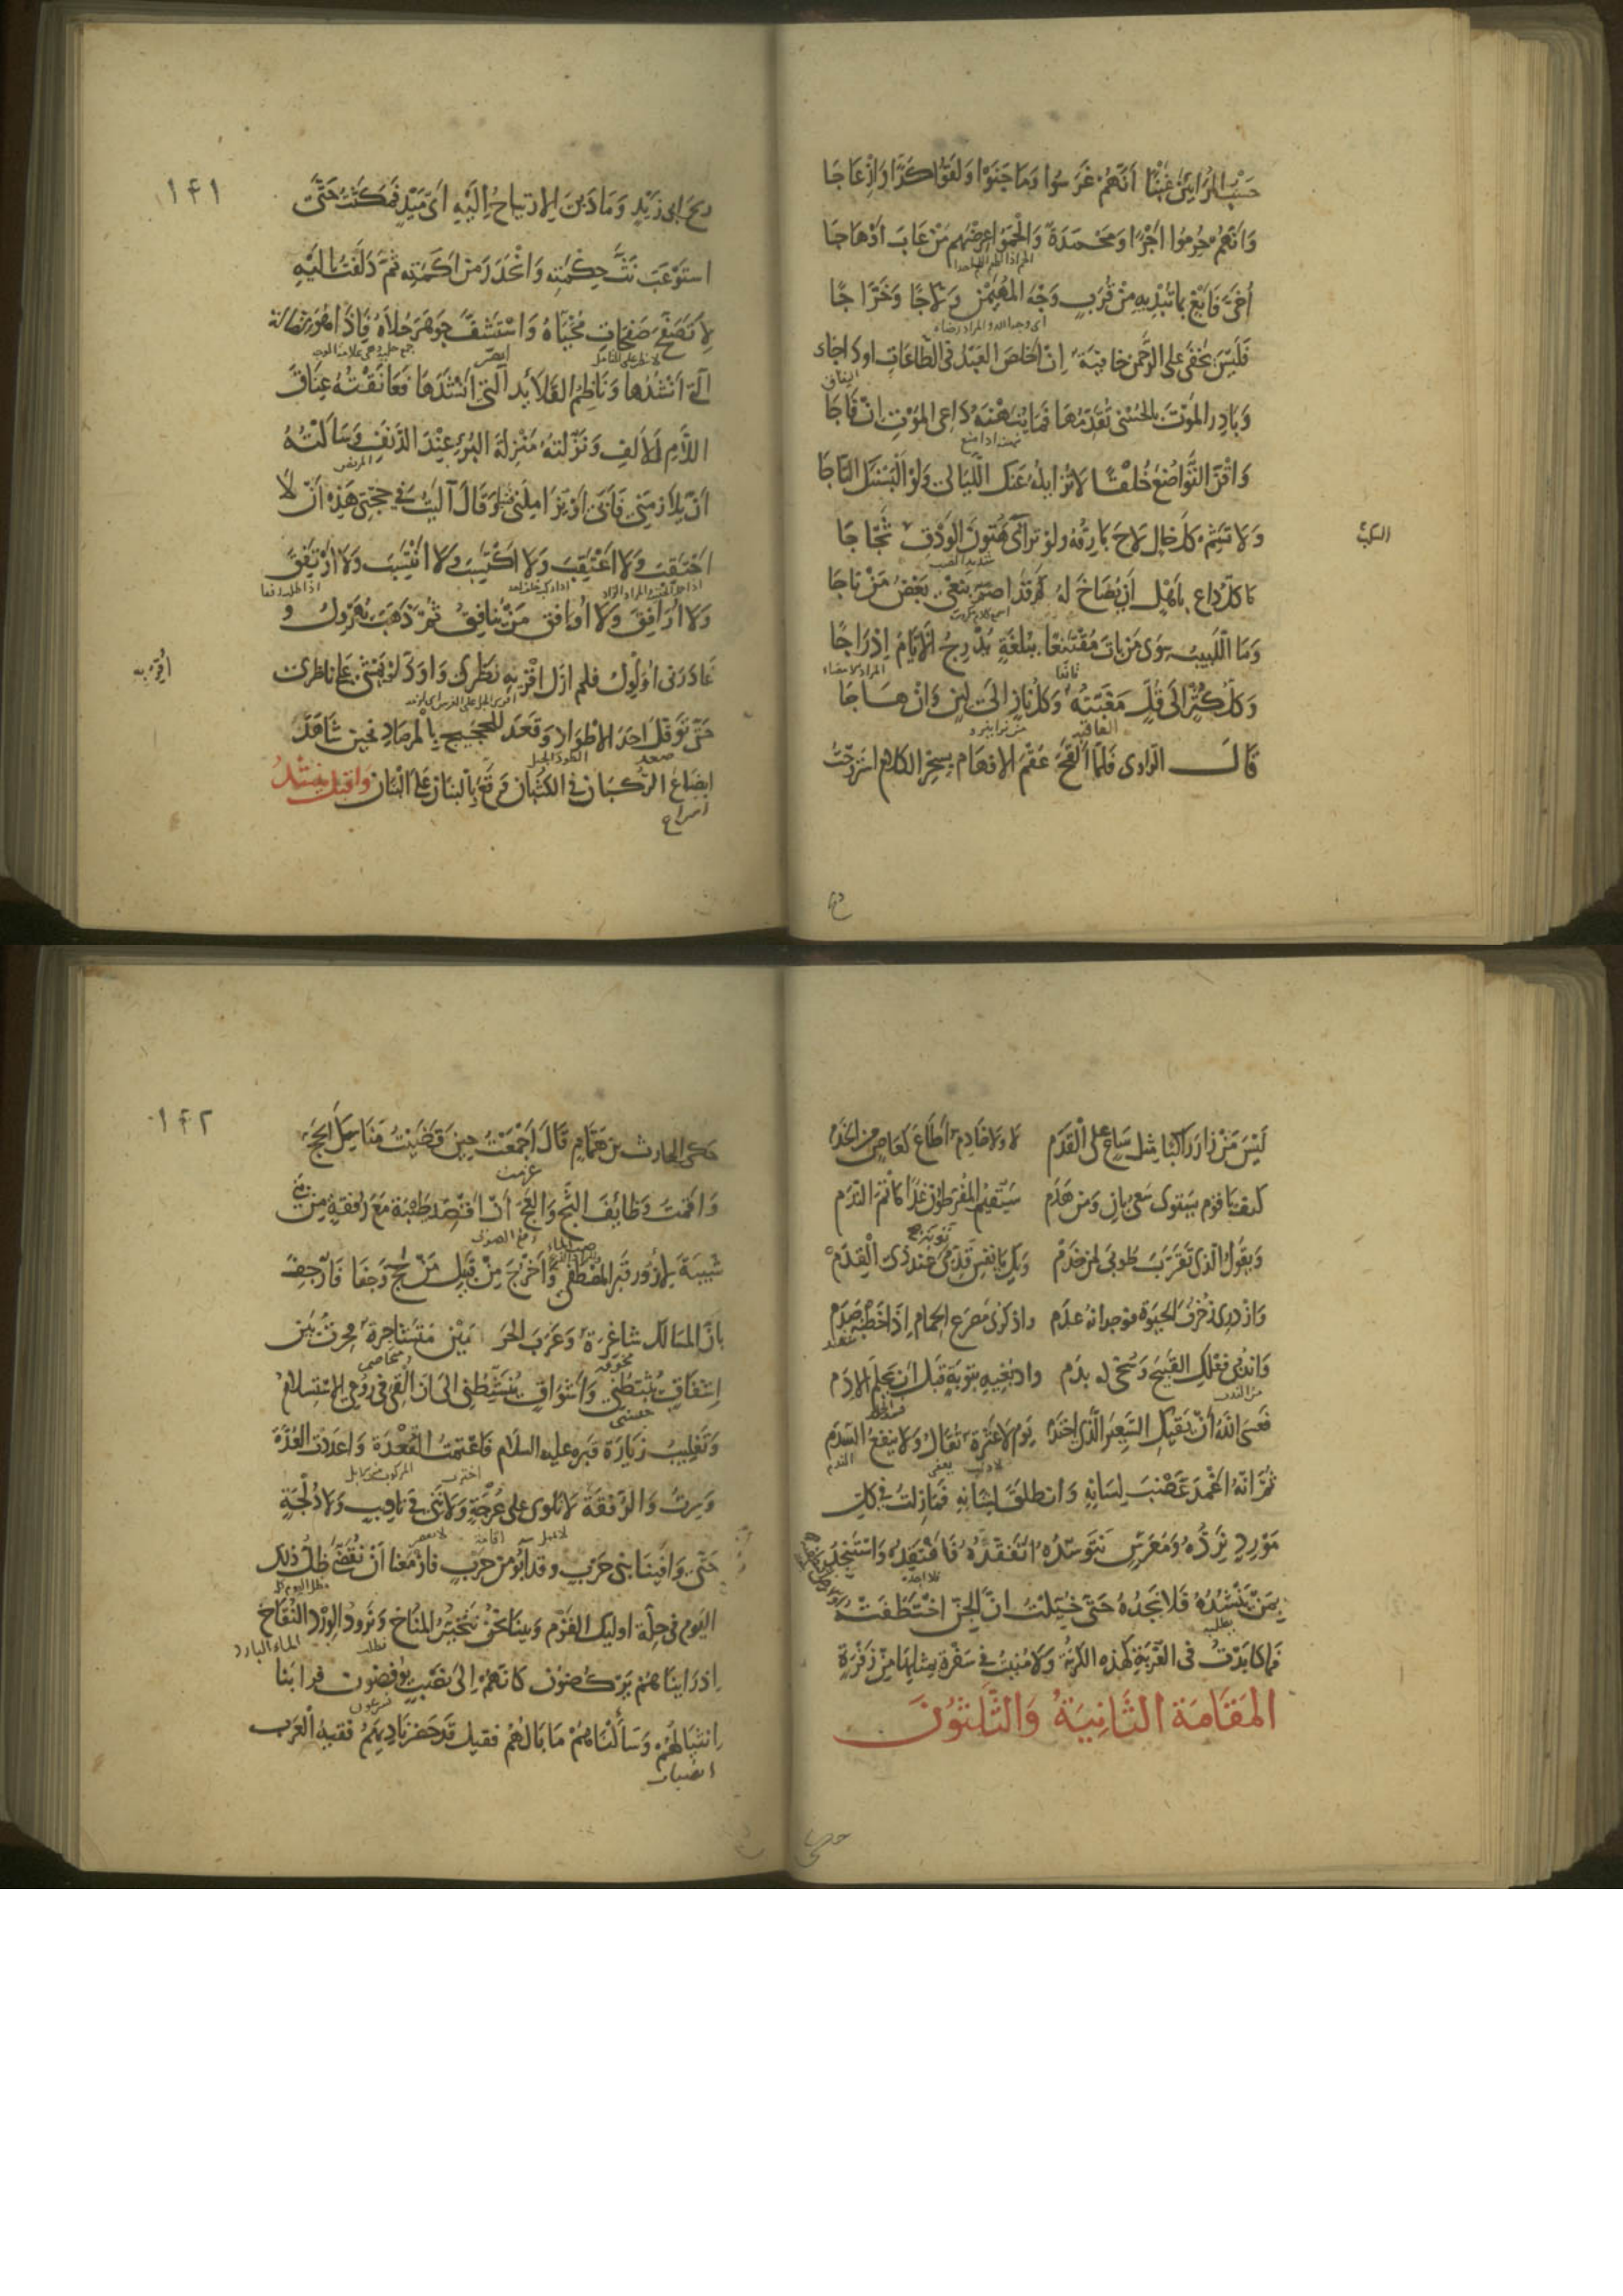 حَسْبُ المُرَائِينَ غَبْنًا أَنَّهُمْ غَرَسُوا وَمَا جَنَوْا وَلَقُوا كَدًّا وَإِزْعَاجَا
وَأَنَّهُمْ حُرِمُوا أَجْرًا وَمَحْمَدَةً وَأَلْحَمُوا عِرْضَهُمْ مَنْ عَابَ أَوْ هَاجَا
أُخَيَّ فَابْغِ بِمَا تُبْدِيهِ مِنْ قُرَبٍ وَجْهَ المُهَيْمِنِ وَلَّاجًا وَخَرَّاجَا
فَلَيْسَ تَخْفَى عَلَى الرَّحْمٰنِ خَافِيَةٌ إِنْ أَخْلَصَ العَبْدُ فِي الطَّاعَاتِ أَوْ دَاجَا
النفاق
وَبَادِرِ المَوْتَ بِالحُسْنَى تُقَدِّمُهَا فَمَا يُنَهْنَهُ دَاعِي المَوْتِ إِنْ فَاجَا
وَاقْنَ التَّوَاضُعَ خُلْقًا لَا تُزَايِلُهُ عَنْكَ اللَّيَالِي وَلَوْ أَلْبَسْنَكَ التَّاجَا
وَلَا تَشِمْ كُلَّ خَالٍ لَاحَ بَارِقُهُ وَلَوْ تَرَاءَى هَتُونَ الوَدْقِ ثَجَّاجَا
مَا كُلُّ دَاعٍ بِأَهْلٍ أَنْ يُصَاخَ لَهُ كَمْ قَدْ أَصَمَّ بِنَعْيٍ بَعْضُ مَنْ نَاجَا
وَمَا اللَّبِيبُ سِوَى مَنْ بَاتَ مُقْتَنِعًا بِبُلْغَةٍ تُدْرِجُ الأَيَّامَ إِدْرَاجَا
قانعا
وَكُلُّ كُثْرٍ إِلَى قُلٍّ مَغَبَّتُهُ وَكُلُّ نَازٍ إِلَى لِينٍ وَإِنْ هَاجَا
العاقبه
قَالَ الرَّاوِي فَلَمَّا أَلْقَحَ عُقْمَ الأَفْهَامِ بِسِحْرِ الكَلَامِ اسْتَرْوَحْتُ
١٤١
رِيحَ أَبِي زَيْدٍ وَمَادَ بِيَ الاِرْتِيَاحُ إِلَيْهِ أَيَّ مَيْدٍ فَمَكَثْتُ حَتَّى
اسْتَوْعَبَ نَثَّ حِكْمَتِهِ وَانْحَدَرَ مِنْ أَكَمَتِهِ ثُمَّ دَلَفْتُ إِلَيْهِ
لِأَتَصَفَّحَ صَفَحَاتِ مُحَيَّاهُ وَأَسْتَشِفَّ جَوْهَرَ حُلَاهُ فَإِذَا هُوَ
الَّتِي أَنْشُدُهَا وَنَاظِمُ القَلَائِدِ الَّتِي أَنْشَدَهَا فَعَانَقْتُهُ عِنَاقَ
اللَّامِ لِلْأَلِفِ وَنَزَّلْتُهُ مَنْزِلَةَ البُرْءِ عِنْدَ الدَّنِفِ وَسَأَلْتُهُ
المريض
أَنْ يُلَازِمَنِي فَأَبَى أَوْ يُزَامِلَنِي فَنَبَا وَقَالَ آلَيْتُ فِي حِجَّتِي هَذِهِ أَنْ لَا
أَحْتَقِبَ وَلَا أَعْتَقِبَ وَلَا أَكْتَسِبَ وَلَا أَنْتَسِبَ وَلَا أَرْتَفِقَ
وَلَا أُرَافِقَ وَلَا أُوَافِقَ مَنْ يُنَافِقُ ثُمَّ ذَهَبَ يُهَرْوِلُ وَ
غَادَرَنِي أُوَلْوِلُ فَلَمْ أَزَلْ أَقْرِيهِ نَظَرِي وَأَوَدُّ لَوْ يَمْشِي عَلَى نَاظِرِي
حَتَّى تَوَقَّلَ أَحَدَ الأَطْوَادِ وَقَعَدَ لِلْحَجِيجِ بِالمِرْصَادِ فَحِينَ شَاهَدَ
صعد
إِيضَاعَ الرُّكْبَانِ فِي الكُثْبَانِ وَقَّعَ بِالبَنَانِ عَلَى البَنَانِ وَانْدَفَعَ يُنْشِدُ
اسراع
لَيْسَ مَنْ زَارَ رَاكِبًا مِثْلَ سَاعٍ عَلَى القَدَمْ لَا وَلَا خَادِمٌ أَطَاعَ كَعَاصٍ مِنَ الخَدَمْ
كَيْفَ يَا قَوْمِ يَسْتَوِي سَعْيُ بَانٍ وَمَنْ هَدَمْ سَيُقِيمُ المُفَرِّطُونَ غَدًا مَأْتَمَ النَّدَمْ
وَيَقُولُ الَّذِي تَقَرَّبَ طُوبَى لِمَنْ خَدَمْ وَيْكِ يَا نَفْسُ قَدِّمِي عِنْدَ ذِي القِدَمْ
وَازْدَرِي زُخْرُفَ الحَيٰوةِ فَوِجْدَانُهُ عَدَمْ وَاذْكُرِي مَصْرَعَ الحِمَامِ إِذَا خَطْبُهُ صَدَمْ
وَانْدُبِي فِعْلَكِ القَبِيحَ وَسُحِّي لَهُ بِدَمْ وَادْبُغِيهِ بِتَوْبَةٍ قَبْلَ أَنْ يَحْلَمَ الأَدَمْ
فَعَسَى اللّٰهُ أَنْ يَقِيكِ السَّعِيرَ الَّذِي احْتَدَمْ يَوْمَ لَا عَثْرَةٌ تُقَالُ وَلَا يَنْفَعُ السَّدَمْ
الندم
ثُمَّ إِنَّهُ أَغْمَدَ عَضْبَ لِسَانِهِ وَانْطَلَقَ لِشَانِهِ فَمَا زِلْتُ فِي كُلِّ
مَوْرِدٍ نَرِدُهُ وَمُعَرَّسٍ نَتَوَسَّدُهُ أَتَفَقَّدُهُ فَأَفْتَقِدُهُ وَأَسْتَنْجِدُ
بِمَنْ يَنْشُدُهُ فَلَا يَجِدُهُ حَتَّى خِيلْتُ أَنَّ الجِنَّ اخْتَطَفَتْهُ
يطلبه
فَمَا كَابَدْتُ فِي الغُرْبَةِ كَهَذِهِ الكُرْبَةِ وَلَا مُنِيتُ فِي سَفْرَةٍ بِمِثْلِهَا مِنْ زَفْرَةٍ
المَقَامَةُ الثَّانِيَةُ وَالثَّلٰثُونَ
١٤٢
حَكَى الحَارِثُ بْنُ هَمَّامٍ قَالَ أَجْمَعْتُ حِينَ قَضَيْتُ مَنَاسِكَ الحَجِّ
عزمت
وَأَقَمْتُ وَظَائِفَ الثَّجِّ وَالعَجِّ أَنْ أَقْصِدَ طَيْبَةَ مَعَ رُفْقَةٍ مِنْ بَنِي
شَيْبَةَ لِأَزُورَ قَبْرَ المُصْطَفَى وَأَخْرُجَ مِنْ قَبِيلِ مَنْ حَجَّ وَجَفَا فَأُرْجِفَ
بِأَنَّ المَسَالِكَ شَاغِرَةٌ وَعَرَبَ الحَرَمَيْنِ مُتَشَاجِرَةٌ فَحِرْتُ بَيْنَ
إِشْفَاقٍ يُثَبِّطُنِي وَأَشْوَاقٍ تُنَشِّطُنِي إِلَى أَنْ أُلْقِيَ فِي رُوعِي الاِسْتِسْلَامُ
وَتَغْلِيبُ زِيَارَةِ قَبْرِهِ عَلَيْهِ السَّلَامُ فَاعْتَمْتُ القُعْدَةَ وَأَعْدَدْتُ العُدَّةَ
وَسِرْتُ وَالرُّفْقَةُ لَا نَلْوِي عَلَى عُرْجَةٍ وَلَا نَنِي فِي تَأْوِيبٍ وَلَا دُلْجَةٍ
حَتَّى وَافَيْنَا بَنِي حَرْبٍ وَقَدْ آبُوا مِنْ حَرْبٍ فَأَزْمَعْنَا أَنْ نُقَضِّيَ ظِلَّ ذَلِكَ
اليَوْمِ فِي حِلَّةِ أُولَئِكَ القَوْمِ وَبَيْنَا نَحْنُ نَتَخَيَّرُ المُنَاخَ وَنَرُودُ الوِرْدَ النُّقَاخَ
الماء البارد
إِذْ رَأَيْنَاهُمْ يَرْكُضُونَ كَأَنَّهُمْ إِلَى نُصُبٍ يُوفِضُونَ فَرَابَنَا
انْثِيَالُهُمْ وَسَأَلْنَاهُمْ مَا بَالُهُمْ فَقِيلَ قَدْ حَضَرَ نَادِيَهُمْ فَقِيهُ العَرَبِ
انصباب